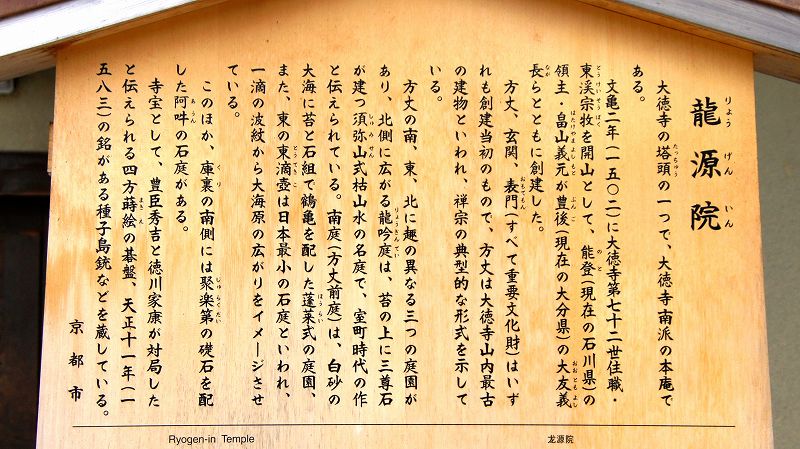 龍源院
りょうげんいん
大徳寺の塔頭の一つで、大徳寺南派の本庵で
たっちゅう
ある。
文亀二年(一五〇二)に大徳寺第七十二世住職・
東渓宗牧を開山として、能登(現在の石川県)の
とうけいそうぼく
のと
領主・畠山義元が豊後(現在の大分県)の大友義
はたけやまよしもと
ぶんご
おおともよし
長らとともに創建した。
なが
方丈、玄関、表門(すべて重要文化財)はいず
おもてもん
れも創建当初のもので、方丈は大徳寺山内最古
の建物といわれ、禅宗の典型的な形式を示して
いる。
方丈の南、東、北に趣の異なる三つの庭園が
あり、北側に広がる龍吟庭は、苔の上に三尊石
りょうぎんてい
が建つ須弥山式枯山水の名庭で、室町時代の作
しゅみせん
と伝えられている。南庭(方丈前庭)は、白砂の
大海に苔と石組で鶴亀を配した蓬莱式の庭園、
ほうらい
また、東の東滴壺は日本最小の石庭といわれ、
とうてきこ
一滴の波紋から大海原の広がりをイメージさせ
ている。
このほか、庫裏の南側には聚楽第の礎石を配
くり
じゅらくだい
した阿吽の石庭がある。
あうん
寺宝として、豊臣秀吉と徳川家康が対局した
と伝えられる四方蒔絵の碁盤、天正十一年(一
まきえ
五八三)の銘がある種子島銃などを蔵している。
京都市
Ryogen-in Temple
龙源院